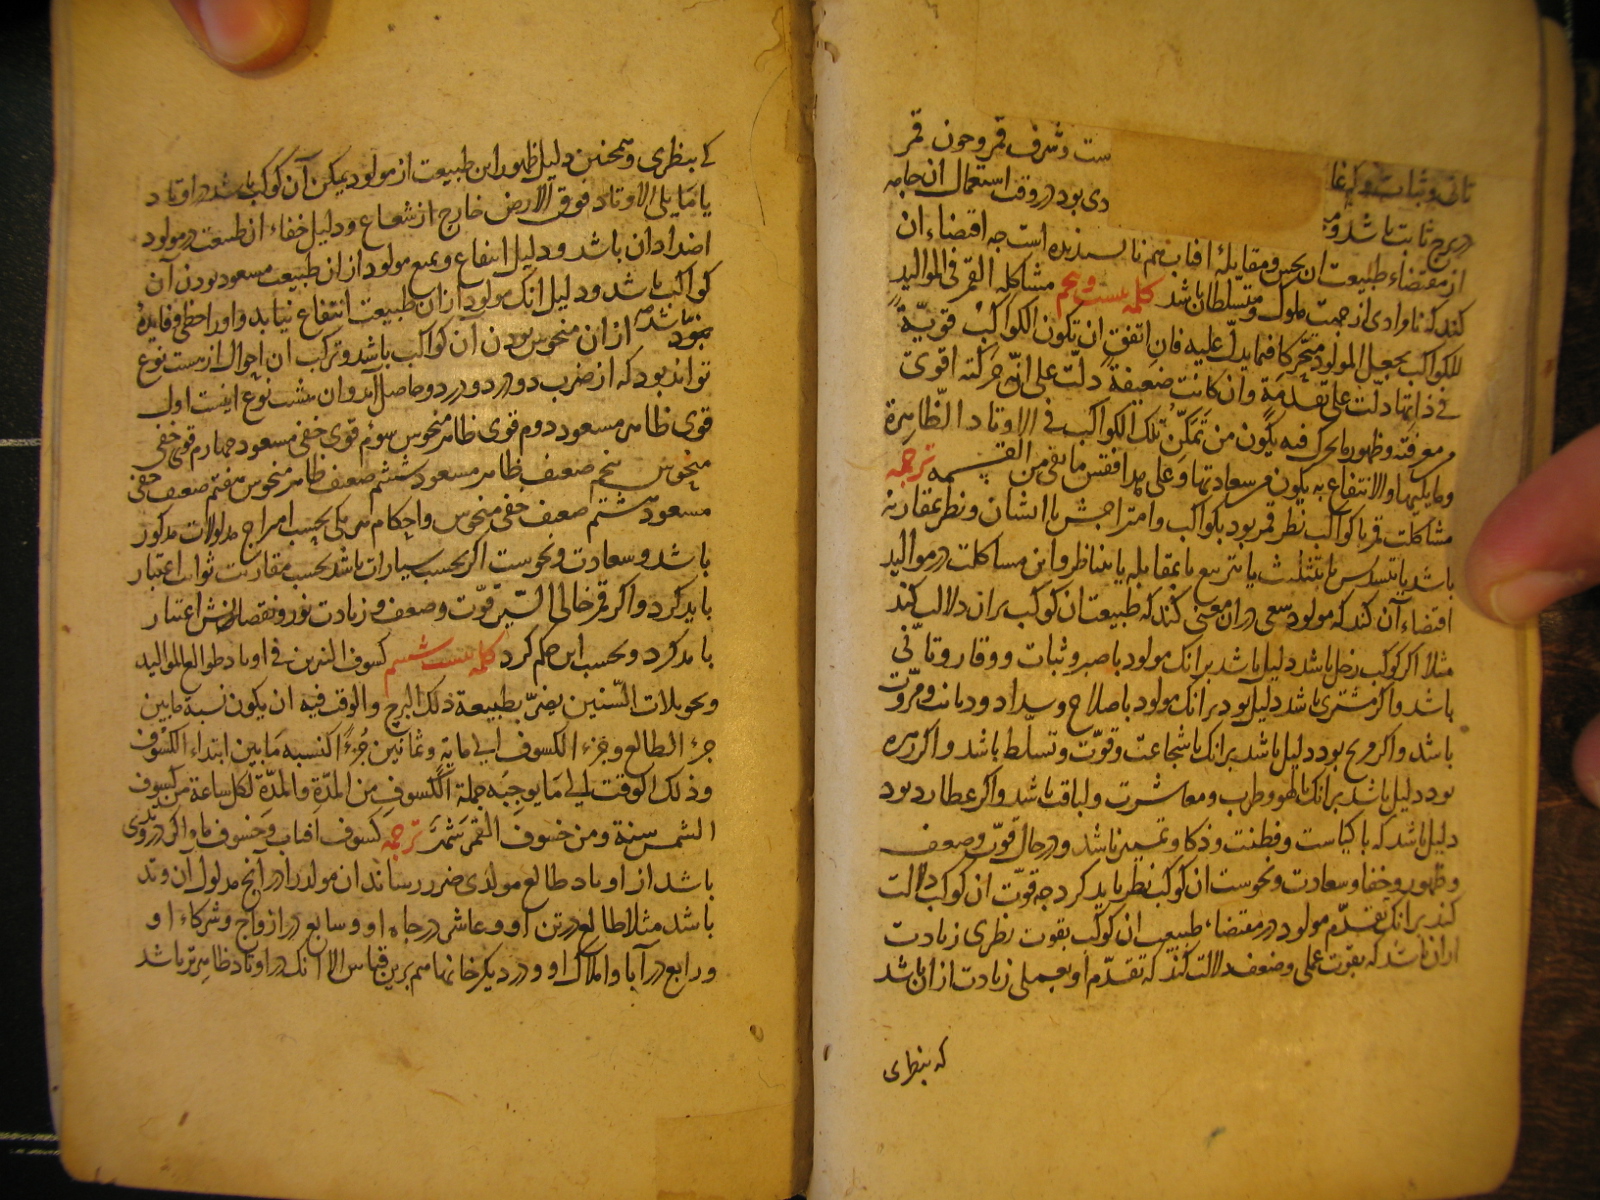 ثانی و ثبات و که غا ست و شرف قمر و چون قمر
در برج ثابت باشد و دی بود در وقت استعمال آن جامه
از مقتضاء طبیعت آن نحس و مقابلهٔ افتاب هم ناپسندیده است چه اقتضاء ان
کند که ناوادی از جهت ملوک و متسلطان باشد کلمه بیست و پنجم مشاکلة القمر فی الموالید
للکواکب یجعل المولود متحرکا فیما یدل علیه فان اتفق ان تکون الکواکب قویّة
فی ذاتها دلّت علی تقدمة وان کانت ضعیفة دلّت علی انّ حرکته اقوی
معرفته وظهور ما یحرک فیه یکون من تمکّن تلک الکواکب فی الاوتاد الظّاهرة
وما یلیها والانتفاع به یکون من سعادتها وعلی هذا فقس ما بقی من القسمه ترجمه
مشاکلت قمر با کواکب نظر قمر بود با کواکب وامتزاجش با ایشان و نظر بمقارنه
باشد یا بتسدیس یا بتثلیث یا بتربیع یا بمقابله یا بتناظر و این مشاکلت در موالید
اقتضاء آن کند که مولود سعی در ان معنی کند که طبیعت ان کوکب بران دلالت کند
مثلا اگر کوکب زحل باشد دلیل باشد برانک مولود با صبر و ثبات و وقار و تانّی
باشد و اگر مشتری باشد دلیل بود برانک مولود با صلاح و سداد و دیانت و مروّت
باشد و اگر مریخ بود دلیل باشد برانک با شجاعت و قوّت و تسلّط باشد و اگر زهره
بود دلیل باشد برانک با لهو و طرب و معاشرت و لباقت باشد و اگر عطارد بود
دلیل باشد که با کیاست و فطنت و ذکا و تمییز باشد و در حال قوّت و ضعف
و ظهور و خفا و سعادت و نحوست ان کوکب نظر باید کرد چه قوّت ان کوکب دلالت
کند برانک تقدّم مولود در مقتضاء طبیعت ان کوکب بقوت نظری زیادت
ازان باشد که بقوت عملی و ضعف دلالت کند که تقدّم او بعملی زیادت ازان باشد
که بنظری
که بنظری و همچنین دلیل ظهور این طبیعت از مولود تمکین آن کوکب باشد در اوتاد
یا مایلی الاوتاد فوق الارض خارج از شعاع و دلیل خفاء ان طبیعت در مولود
اضداد ان باشد و دلیل انتفاع و تمتع مولود از ان طبیعت مسعود بودن آن
کواکب باشد و دلیل انک مولود ازان طبیعت انتفاع نیابد و او را حظی و فایدهٔ
نبود ازان منحوس بودن ان کواکب باشد و ترکب ان احوال از هشت نوع
تواند بود که از ضرب دو در دو در دو حاصل آید و ان هشت نوع اینست اول
قوی ظاهر مسعود دوم قوی ظاهر منحوس سوم قوی خفی مسعود چهارم قوی خفی
منحوس پنجم ضعیف ظاهر مسعود ششم ضعیف ظاهر منحوس هفتم ضعیف خفی
مسعود هشتم ضعیف خفی منحوس و احکام هر یکی بحسب امزاج مدلولات مذکور
باشد و سعادت و نحوست اگر بحسب سیارات باشد بحسب مقارنت ثوابت اعتبار
باید کرد و اگر قمر خالی السّیر قوّت و ضعف و زیادت نور و نقصانش اعتبار
باید کرد و بحسب این حکم کرد کلمه بیست و ششم کسوف النیرین فی اوتاد طوالع الموالید
وتحویلات السّنین یضرّ بطبیعة ذلک البرج والوقت فیه ان یکون نسبة مابین
جزء الطالع وجزء الکسوف الی مایة وثمانین جُزءً کنسبه مَا بین ابتداء الکسوف
وذلک الوقت الی مَا یوجبه جملة الکسوف من المدّة والمدّة لکل ساعة من کسوف
الشمس سنة ومن خسوف القمر شهر ترجمه کسوف افتاب و خسوف ماه اگر در وتدی
باشد از اوتاد طالع مولدی ضرر رساند ان مولد را در آنچ مدلول آن وتد
باشد مثلا طالع در تن او و عاشر در جاه او و سابع در ازواج و شرکاء او
و رابع در آبا و املاک او و در دیگر خانها هم برین قیاس الا انک در اوتاد ظاهرتر باشد